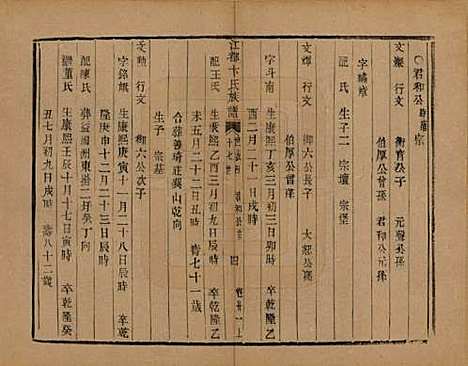 君和公
文 行文 衡育公子 元聲公孫
伯厚公曾孫 君和公元孫
字 章
配 氏 生子二 宗壇 宗堡
文輝 行文 御六公長子 大 公孫
伯厚公曾孫
字斗南 生康熙丁亥三月初三日卯時 卒乾隆乙
酉二月二十一日戌時
江都卞氏族譜
配王氏 生康熙乙酉三月初九日辰時 卒乾隆乙
未五月二十二日丑時 壽七十一歲
合葬善琦莊 山乾向
生子 宗基
文勳 行文 御六公次子
字銘 生康熙庚寅十一月二十八日辰時 卒乾
隆庚申十二月二十三日辰時
配陳氏 葬益 洲東 三 癸丁向
繼董氏 生康熙壬辰十月十七日寅時 卒乾隆癸
丑七月初九日戌時 壽八十二歲